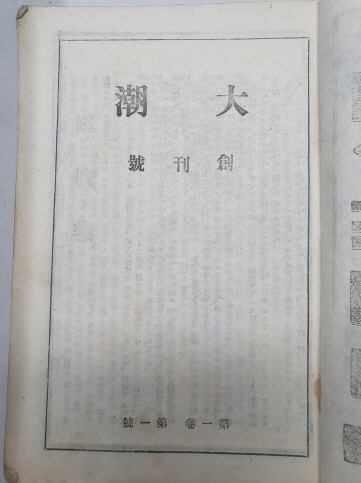 大潮
創刊號
第一卷 第一號